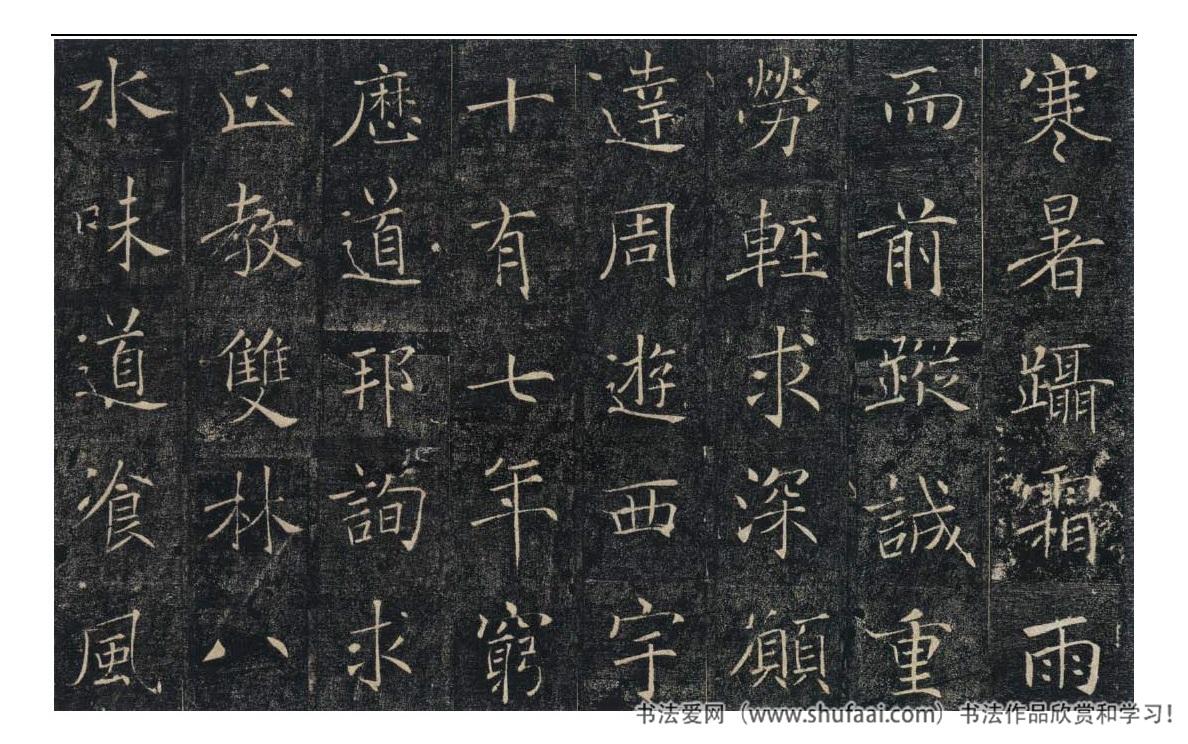 寒暑躡霜雨
而前蹤誠重
勞輕求深願
達周遊西宇
十有七年窮
歷道邦詢求
正教雙林八
水味道飡風
书法爱网（www.shufaai.com）书法作品欣赏和学习！